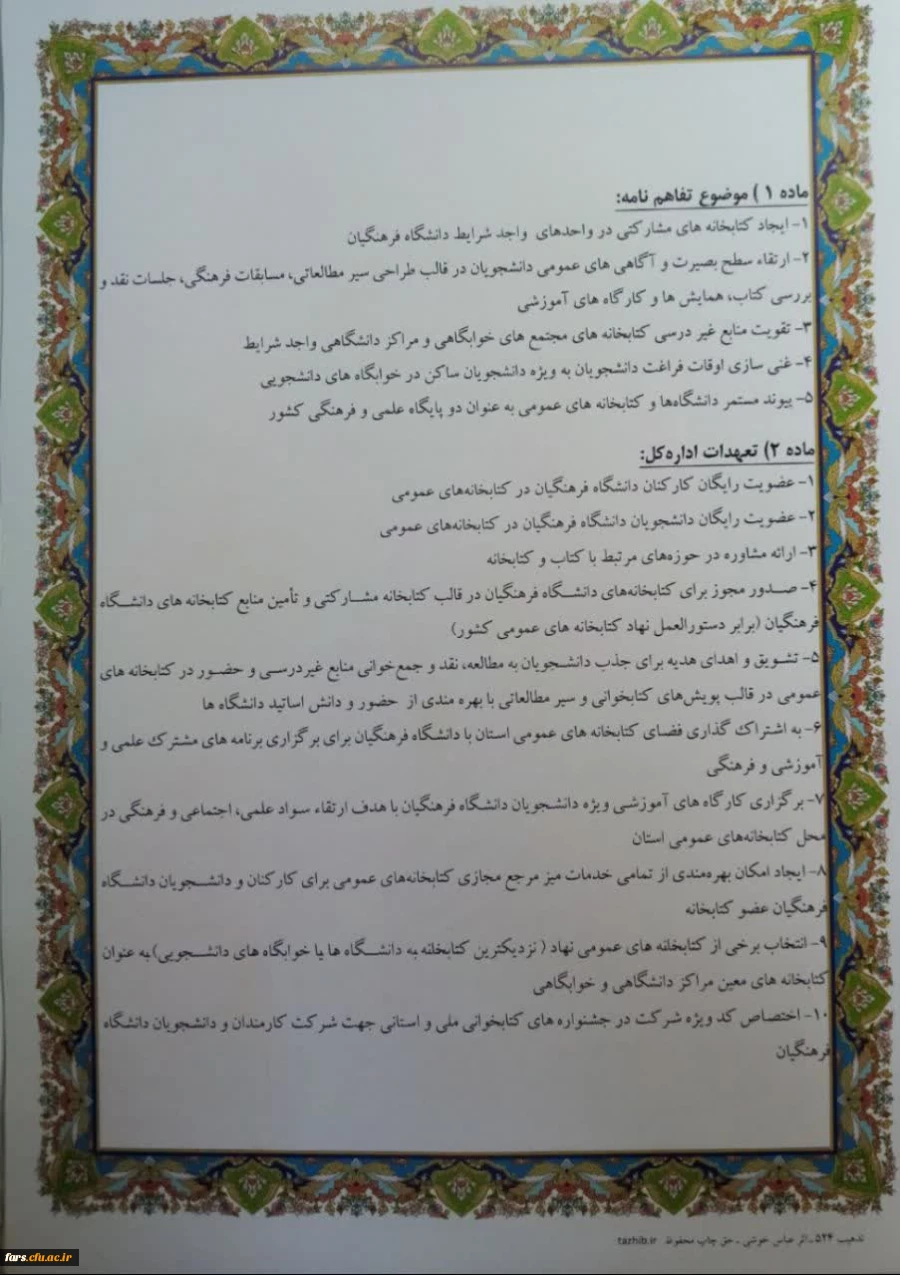 ماده ۱ ) موضوع تفاهم نامه:
۱- ایجاد کتابخانه های مشارکتی در واحدهای واجد شرایط دانشگاه فرهنگیان
۲- ارتقاء سطح بصیرت و آگاهی های عمومی دانشجویان در قالب طراحی سیر مطالعاتی، مسابقات فرهنگی، جلسات نقد و
بررسی کتاب، همایش ها و کارگاه های آموزشی
۳- تقویت منابع غیر درسی کتابخانه های مجتمع های خوابگاهی و مراکز دانشگاهی واجد شرایط
۴- غنی سازی اوقات فراغت دانشجویان به ویژه دانشجویان ساکن در خوابگاه های دانشجویی
۵- پیوند مستمر دانشگاه‌ها و کتابخانه های عمومی به عنوان دو پایگاه علمی و فرهنگی کشور
ماده ۲) تعهدات اداره‌کل:
۱- عضویت رایگان کارکنان دانشگاه فرهنگیان در کتابخانه‌های عمومی
۲- عضویت رایگان دانشجویان دانشگاه فرهنگیان در کتابخانه‌های عمومی
۳- ارائه مشاوره در حوزه‌های مرتبط با کتاب و کتابخانه
۴- صدور مجوز برای کتابخانه‌های دانشگاه فرهنگیان در قالب کتابخانه مشارکتی و تأمین منابع کتابخانه های دانشگاه
فرهنگیان (برابر دستورالعمل نهاد کتابخانه های عمومی کشور)
۵- تشویق و اهدای هدیه برای جذب دانشجویان به مطالعه، نقد و جمع‌خوانی منابع غیردرسی و حضور در کتابخانه های
عمومی در قالب پویش‌های کتابخوانی و سیر مطالعاتی با بهره مندی از حضور و دانش اساتید دانشگاه ها
۶- به اشتراک گذاری فضای کتابخانه های عمومی استان با دانشگاه فرهنگیان برای برگزاری برنامه های مشترک علمی و
آموزشی و فرهنگی
۷- برگزاری کارگاه های آموزشی ویژه دانشجویان دانشگاه فرهنگیان با هدف ارتقاء سواد علمی، اجتماعی و فرهنگی در
محل کتابخانه‌های عمومی استان
۸- ایجاد امکان بهره‌مندی از تمامی خدمات میز مرجع مجازی کتابخانه‌های عمومی برای کارکنان و دانشجویان دانشگاه
فرهنگیان عضو کتابخانه
۹- انتخاب برخی از کتابخانه های عمومی نهاد ( نزدیکترین کتابخانه به دانشگاه ها یا خوابگاه های دانشجویی) به عنوان
کتابخانه های معین مراکز دانشگاهی و خوابگاهی
۱۰- اختصاص کد ویژه شرکت در جشنواره های کتابخوانی ملی و استانی جهت شرکت کارمندان و دانشجویان دانشگاه
فرهنگیان
تذهیب ۵۲۴ ـ اثر عباس خوشی ـ حق چاپ محفوظ tazhib.ir
fars.cfu.ac.ir